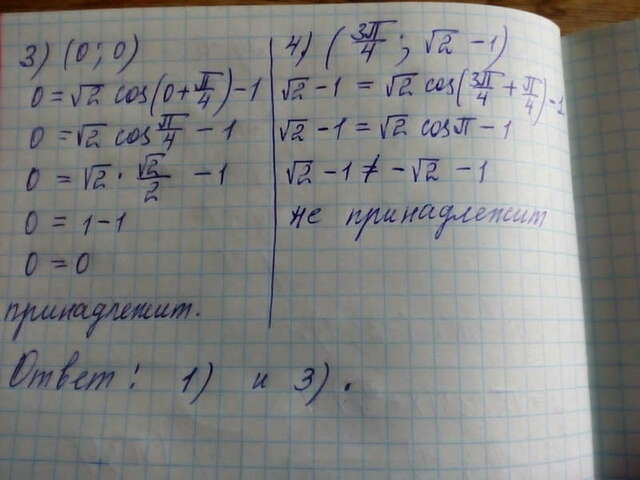 3) (0; 0)
0 = √2 cos(0 + π/4) - 1
0 = √2 cos π/4 - 1
0 = √2 · √2/2 - 1
0 = 1 - 1
0 = 0
принадлежит.
4) (3π/4; √2 - 1)
√2 - 1 = √2 cos(3π/4 + π/4) - 1
√2 - 1 = √2 cos π - 1
√2 - 1 ≠ -√2 - 1
не принадлежит
Ответ: 1) и 3).